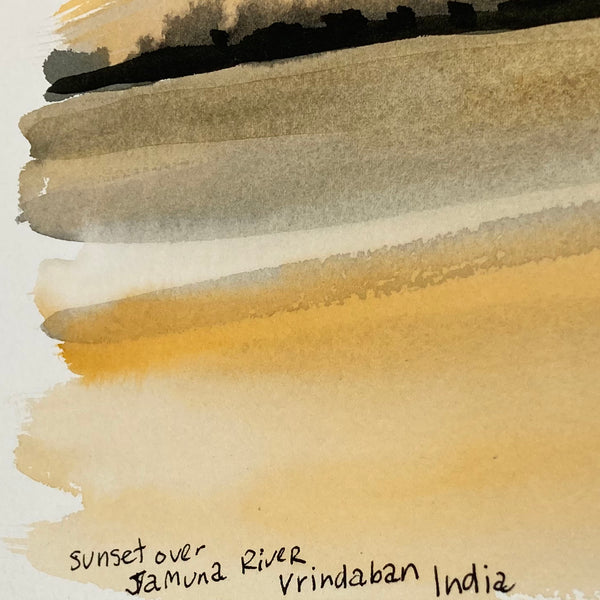 sunset over
Jamuna River
Vrindaban India